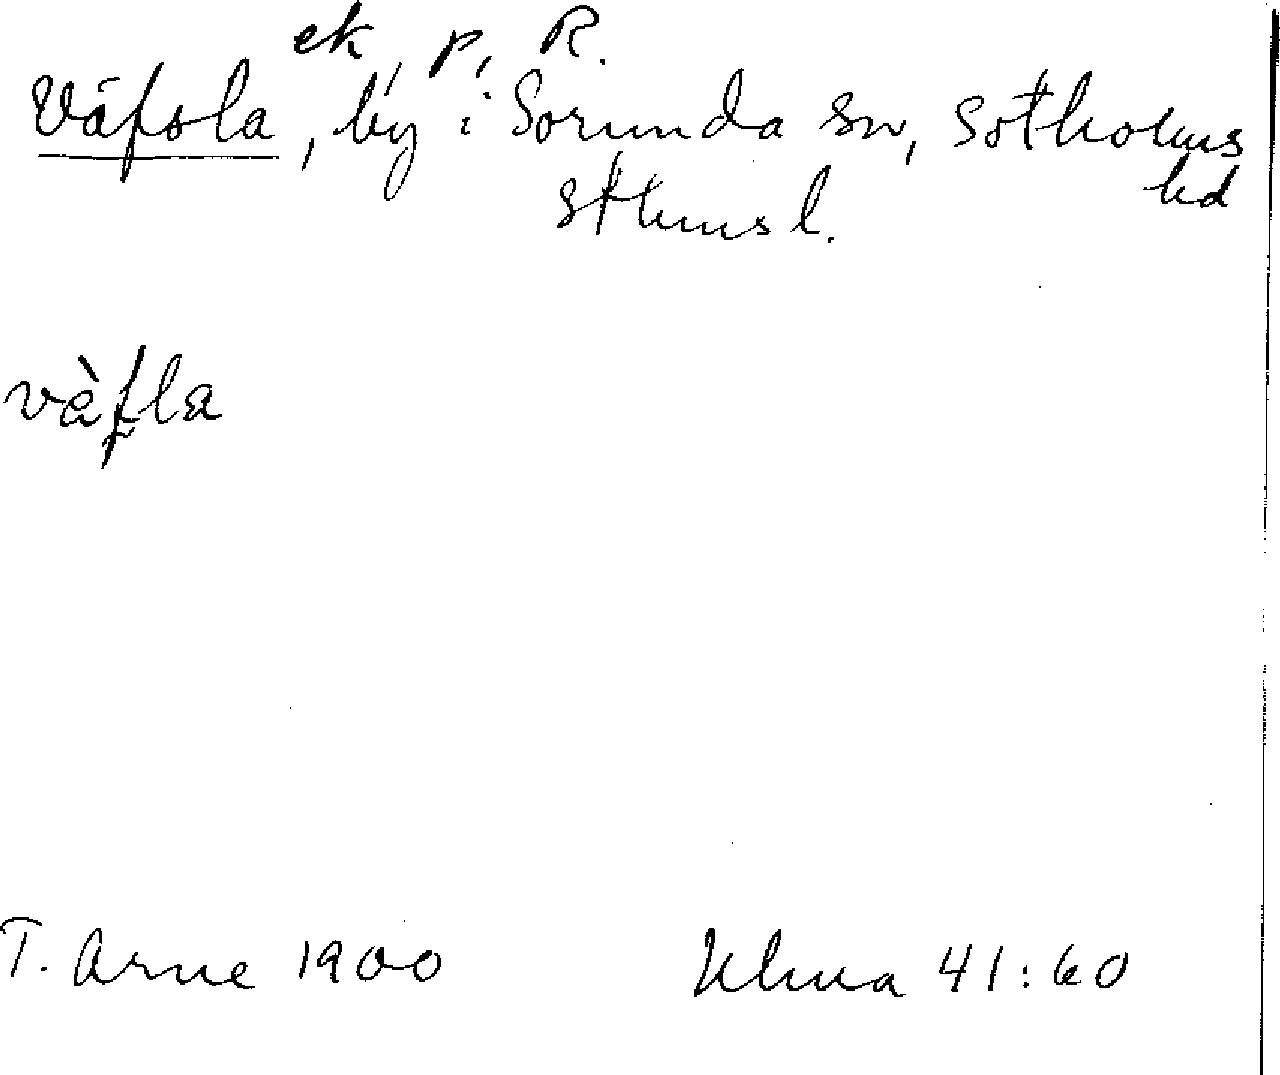 ek, p, R.
Väfsla, by i Sorunda sn, Sotholms
hd
Sthms l.
vàfla
T. Arne 1900 Uhma 41:60